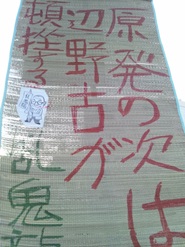 原発の次は
辺野古が
頓挫する
乱鬼龍